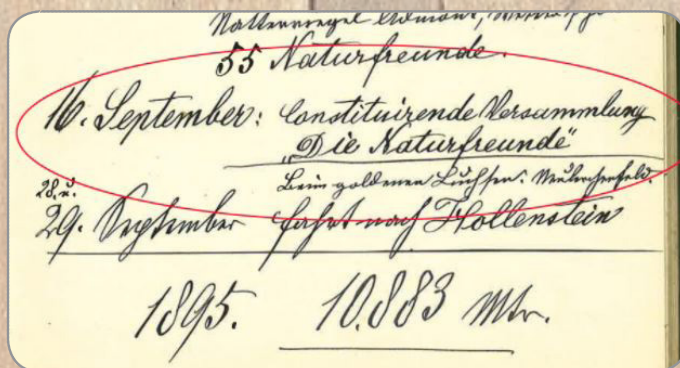 Natterriegel Admont,
55 Naturfreunde.
16. September: Constituirende Versammlung
„Die Naturfreunde“
Beim goldenen Luchsen. Neulerchenfeld.
28. u.
29. September fahrt nach Hollenstein
1895. 10.883 Mtr.